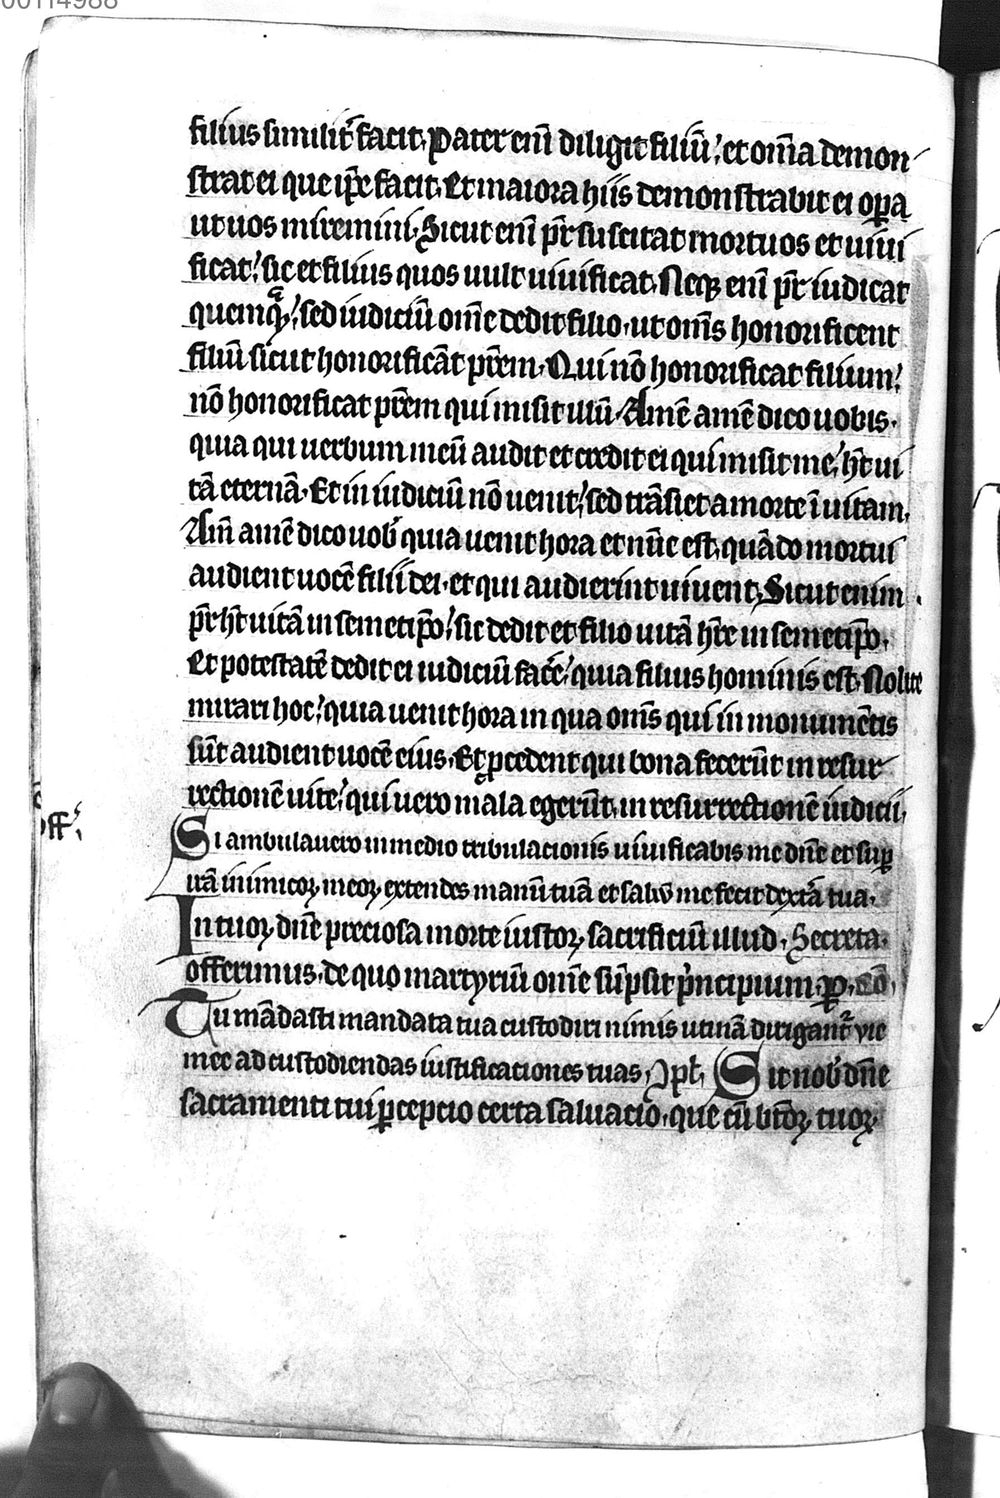 00114988
filius similit᷑ facit. Pater enī diligit filiū. et om̄ia demon
strat ei que ip̄e facit. Et maiora hiis demonstrabit ei oꝑa
ut uos miremini. Sicut enī pr̄ suscitat mortuos et uiui
ficat. sic et filius quos uult uiuificat. Neqꝫ enī pr̄ iudicat
quemqᷓ. sed iudiciū om̄e dedit filio. ut om̄s honorificent
filiū sicut honorificāt prēm. Qui nō honorificat filium.
nō honorificat prēm qui misit illū. Amē amē dico uobis.
quia qui uerbum meū audit et credit ei qui misit me. hт̄ ui
tā eternā. Et in iudiciū nō uenit. sed trāsiet a morte ī uitam.
Am̄ amē dico uob᷒ quia uenit hora et nūc est. quādo mortui
audient uocē filii dei. et qui audierint uiuent. Sicut enim
pr̄ ht̄ uitā in semetip̄o. sic dedit et filio uitā hr̄e in semetip̄o.
Et potestatē dedit ei iudiciū facē. quia filius hominis est. Nolite
mirari hoc. quia uenit hora in qua om̄s qui in monumētis
sūt audient uocē eius. Et ꝓcedent qui bona fecerūt in resur
rectionē uite. qui uero mala egerūt. in resurrectionē iudicii.
off᷒.
Si ambulauero in medio tribulacionis uiuificabis me dn̄e et suꝑ
irā inimicoꝝ meoꝝ extendes manū tuā et saluū me fecit dextā tua.
In tuoꝝ dn̄e preciosa morte iustoꝝ sacrificiū illud. Secreta.
offerimus. de quo martyriū om̄e sūpsit pͥncipium. ꝑ. cō.
Tu mādasti mandata tua custodiri nimis utinā dirigant᷑ vie
mee ad custodiendas iustificaciones tuas. Sit nob᷒ dn̄e
sacramenti tui ꝑcepcio certa saluacio. que cū bt̄oꝝ tuoꝝ